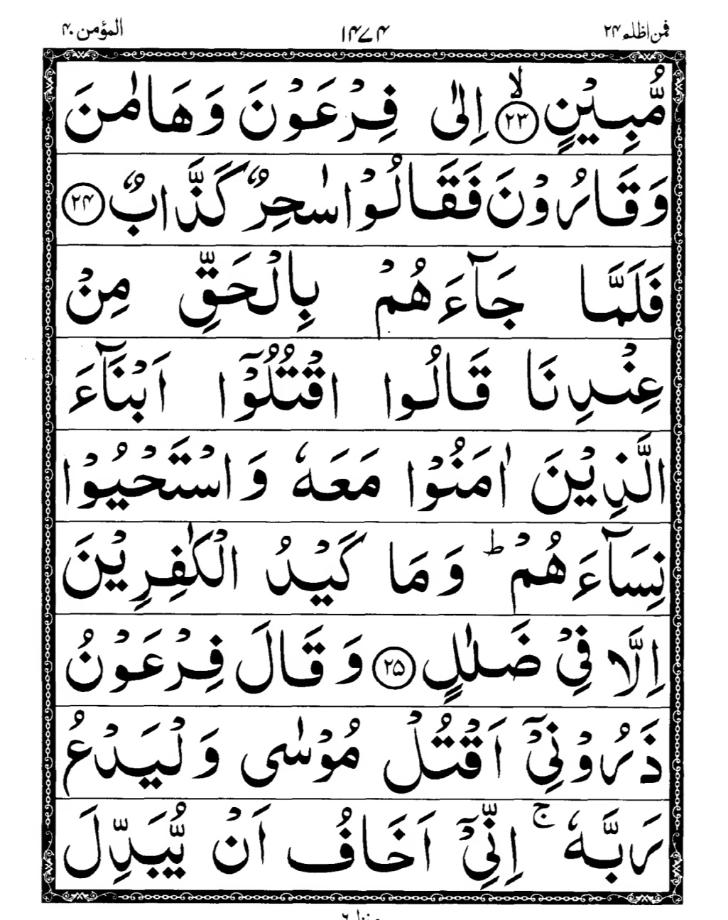 المؤمن ۴۰ ۱۴۷۴ فمن اظلم ۲۴
مُّبِيْنٍ ۙ﴿۲۳﴾ اِلٰى فِرْعَوْنَ وَهَامٰنَ
وَقَارُوْنَ فَقَالُوْا سٰحِرٌ كَذَّابٌ ﴿۲۴﴾
فَلَمَّا جَآءَهُمْ بِالْحَقِّ مِنْ
عِنْدِنَا قَالُوا اقْتُلُوْٓا اَبْنَآءَ
الَّذِيْنَ اٰمَنُوْا مَعَهٗ وَاسْتَحْيُوْا
نِسَآءَهُمْ ؕ وَمَا كَيْدُ الْكٰفِرِيْنَ
اِلَّا فِيْ ضَلٰلٍ ﴿۲۵﴾ وَقَالَ فِرْعَوْنُ
ذَرُوْنِيْٓ اَقْتُلْ مُوْسٰى وَلْيَدْعُ
رَبَّهٗ ۚ اِنِّيْٓ اَخَافُ اَنْ يُّبَدِّلَ